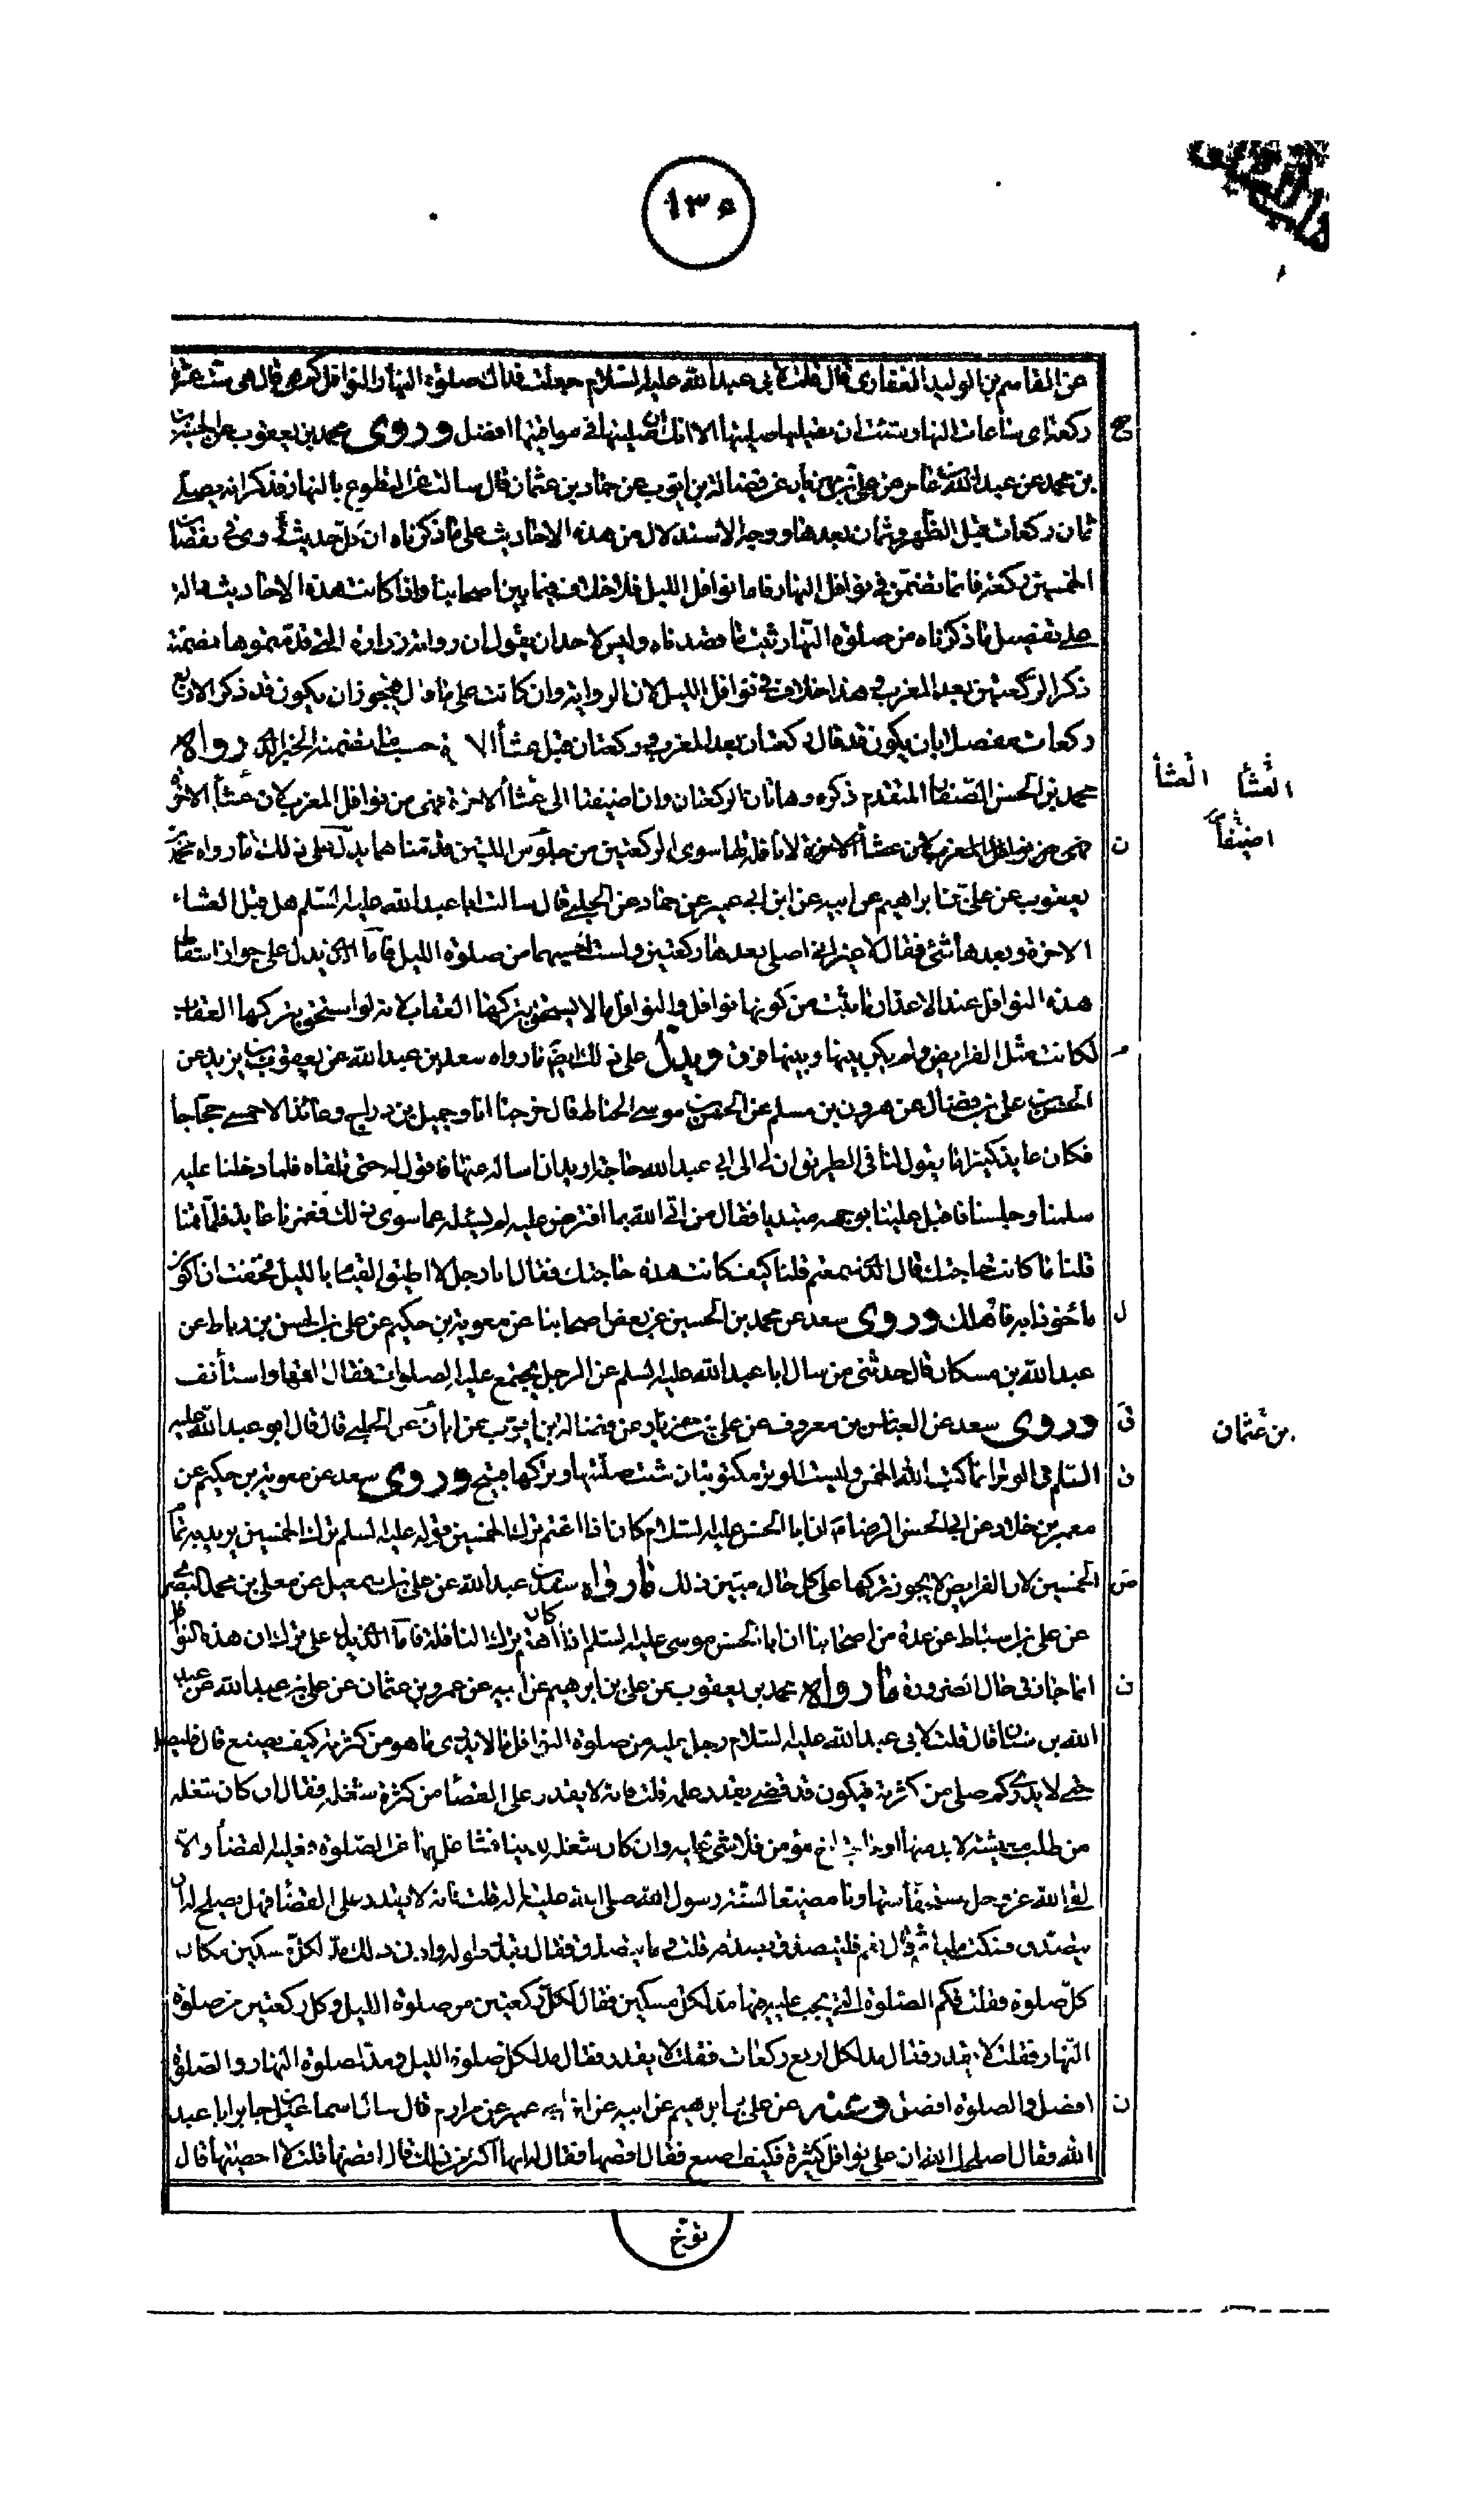 ١٣٥
عن القاسم بن الوليد الغفاري قال قلت لابي عبد الله عليه السلام جعلت فداك صلوة النهار النوافل كم هي قال هي ست عشرة
ركعة اي ساعات النهار شئت ان تصليها صليتها الا انك ان صليتها في مواقيتها افضل وروى محمد بن يعقوب عن الحسين
بن محمد عن عبد الله بن عامر عن علي بن مهزيار عن فضالة بن ايوب عن حماد بن عثمان قال سالته عن التطوع بالنهار فذكر انه يصلي
ثمان ركعات قبل الظهر وثمان بعدها ووجه الاستدلال من هذه الاحاديث على ما ذكرناه ان كل حديث روي في نقصان
الخمسين ركعة فانما تضمن في نوافل النهار فاما نوافل الليل فلا خلاف فيما بين اصحابنا واذا كانت هذه الاحاديث دالة
على تفصيل ما ذكرناه من صلوة النهار ثبت ما قصدناه وليس لاحد ان يقول ان رواية زرارة التي قدمتموها متضمنة
ذكر الركعتين بعد المغرب وهذا خلاف في نوافل الليل لان الرواية وان كانت على ما قال فيجوز ان يكون قد ذكر الاربع
ركعات مفصلا بان يكون قد قال ركعتان بعد المغرب وركعتان قبل عشاء الاخرة حسب ما تضمنه الخبر الذي رواه
محمد بن الحسن الصفار المتقدم ذكره وهاتان الركعتان وان اضيفتا الى عشاء الاخرة فهي من نوافل المغرب لان عشاء الاخرة
فهي من نوافل المغرب لان عشاء الاخرة لا نافلة لها سوى الركعتين من جلوس اللتين قدمناهما يدل على ذلك ما رواه محمد
يعقوب عن علي بن ابراهيم عن ابيه عن ابن ابي عمير عن حماد عن الحلبي قال سالت ابا عبد الله عليه السلم هل قبل العشاء
الاخرة وبعدها شئ فقال لا غير اني اصلي بعدها ركعتين ولست احسبهما من صلوة الليل فاما الذي يدل على جواز اسقاط
هذه النوافل عند الاعذار ما ثبت من كونها نوافل والنوافل مالا يستحق بتركها العقاب لانه لو استحق بتركها العقاب
لكانت مثل الفرايض ولم يكن بينها وبينها فرق ويدل على ذلك ايضا ما رواه سعد بن عبد الله عن يعقوب بن يزيد عن
الحسن بن علي بن فضال عن هرون بن مسلم عن الحسن بن موسى الحناط قال خرجنا انا وجميل بن دراج وعائذ الاحمسي حجاجا
فكان عايذ كثيرا ما يقول لنا في الطريق ان لي الى ابي عبد الله حاجة اريد ان اساله عنها فاقول له حتى نلقاه فلما دخلنا عليه
سلمنا وجلسنا فاقبل علينا بوجهه مبتديا فقال من اتى الله بما افترض عليه لم يسئله عما سوى ذلك فغمزنا عايذ فلما قمنا
قلنا ما كانت حاجتك قال الذي سمعتم قلنا كيف كانت هذه حاجتك فقال انا رجل لا اطيق القيام بالليل فخفت ان اكون
ماخوذا به فاهلك وروى سعد عن محمد بن الحسين عن بعض اصحابنا عن معوية بن حكيم عن علي بن الحسن بن رباط عن
عبد الله بن مسكان قال حدثني من سال ابا عبد الله عليه السلم عن الرجل يجتمع عليه الصلوات فقال القها واستأنف
وروى سعد عن العباس بن معروف عن علي بن مهزيار عن فضالة بن ايوب عن ابان عن الحلبي قال قال ابو عبد الله عليه
السلم في الوتر انما كتب الله الخمس وليست الوتر مكتوبة ان شئت صليتها وتركها قبيح وروى سعد عن معوية بن حكيم عن
معمر بن خلاد عن ابي الحسن الرضا ع ان ابا الحسن عليه السلام كان اذا اغتم ترك الخمسين قوله عليه السلم ترك الخمسين يريد به تمام
الخمسين لان الفرايض لا يجوز تركها على كل حال مبين ذلك ما رواه سعد بن عبد الله عن علي بن اسمعيل عن معلى بن محمد البصري
عن علي بن اسباط عن عدة من اصحابنا ان ابا الحسن موسى عليه السلم كان اذا اهتم ترك النافلة فاما الذي يدل على ترك ان هذه النوافل
انما جاز في حال الضرورة ما رواه محمد بن يعقوب عن علي بن ابرهيم عن ابيه عن عمرو بن عثمان عن علي بن عبد الله عن عبد
الله بن سنان قال قلت لابي عبد الله عليه السلام رجل عليه من صلوة النوافل ما لا يدرى ما هو من كثرته كيف يصنع قال فليصل
حتى لا يدري كم صلى من كثرته فيكون قد قضى بقدر علمه قلت فانه لا يقدر على القضاء من كثرة شغله فقال ان كان شغله
من طلب معيشة لا بد منها او حاجة اخ مؤمن فلا شئ عليه وان كان شغله لدنيا فتشاغل بها عن الصلوة فعليه القضاء والا
لقى الله عز وجل مستخفا متهاونا مضيعا لسنة رسول الله صلى الله عليه واله قلت فانه لا يقدر على القضاء فهل يصلح له ان
يتصدق فسكت مليا ثم قال نعم فليتصدق بصدقة قلت وما يتصدق فقال بقدر طوله وادنى ذلك مد لكل مسكين مكان
كل صلوة فقلت وكم الصلوة التي يجب عليه فيها مد لكل مسكين فقال لكل ركعتين من صلوة الليل وكل ركعتين من صلوة
النهار فقلت لا يقدر فقال مد لكل اربع ركعات فقلت لا يقدر فقال مد لكل صلوة الليل ومد لصلوة النهار والصلوة
افضل والصلوة افضل وعنه عن علي بن ابرهيم عن ابيه عن ابن ابي عمير عن مرازم قال سال اسماعيل بن جابر ابا عبد
الله فقال اصلحك الله ان علي نوافل كثيرة فكيف اصنع فقال اقضها فقال له انها اكثر من ذلك قال اقضها قلت لا احصيها قال
العشاء العشاء
اضيفا
بن عثمان
توخ